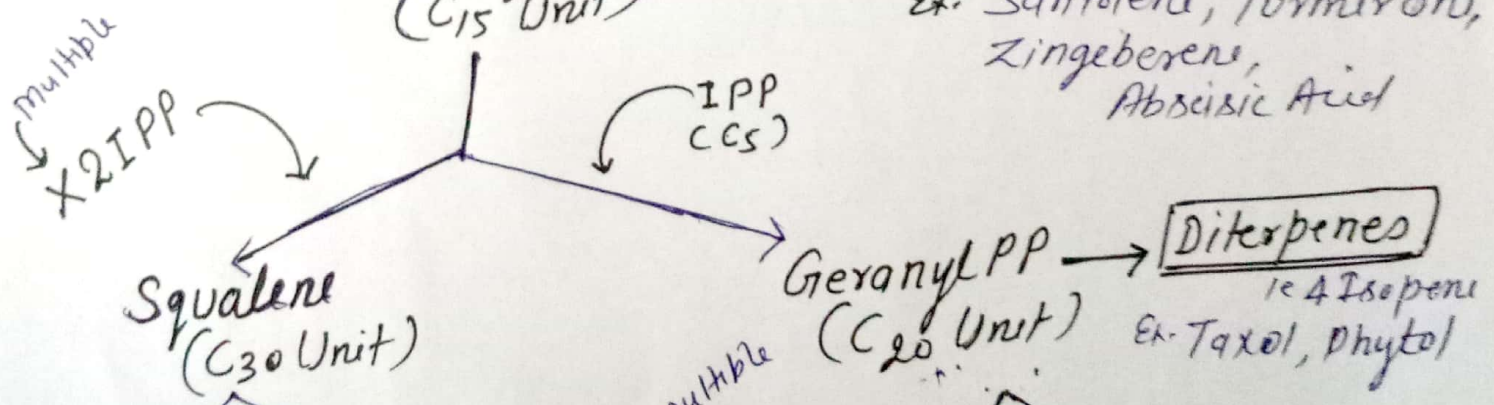 (C15 Unit)
Zingeberene,
Abscisic Acid
multiple
X2IPP
IPP
(C5)
Squalene
(C30 Unit)
Geranyl PP
(C20 Unit)
Diterpenes
ie 4 Isopene
Ex. Taxol, Phytol
multible